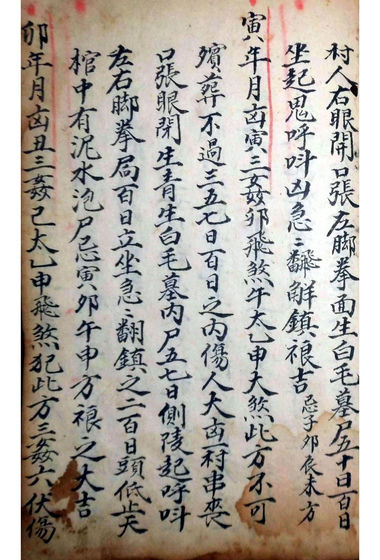 村人右眼開口張左脚拳面生白毛墓尸五十日百日
坐起鬼呼呌凶急〻飜解鎮禳吉忌子卯辰未方
寅年月凶寅三姦卯飛煞午太乙申大煞此方不可
殯葬不過三五七日百日之内傷人大凶一村串喪
口張眼閉生青生白毛墓内尸五七日側陵起呼呌
左右脚拳局百日立坐急〻翻鎮之二百日頭低止天
棺中有泥水泡尸忌寅卯午申方禳之大吉
卯年月凶丑三姦己太乙申飛煞犯此方三姦六伏傷